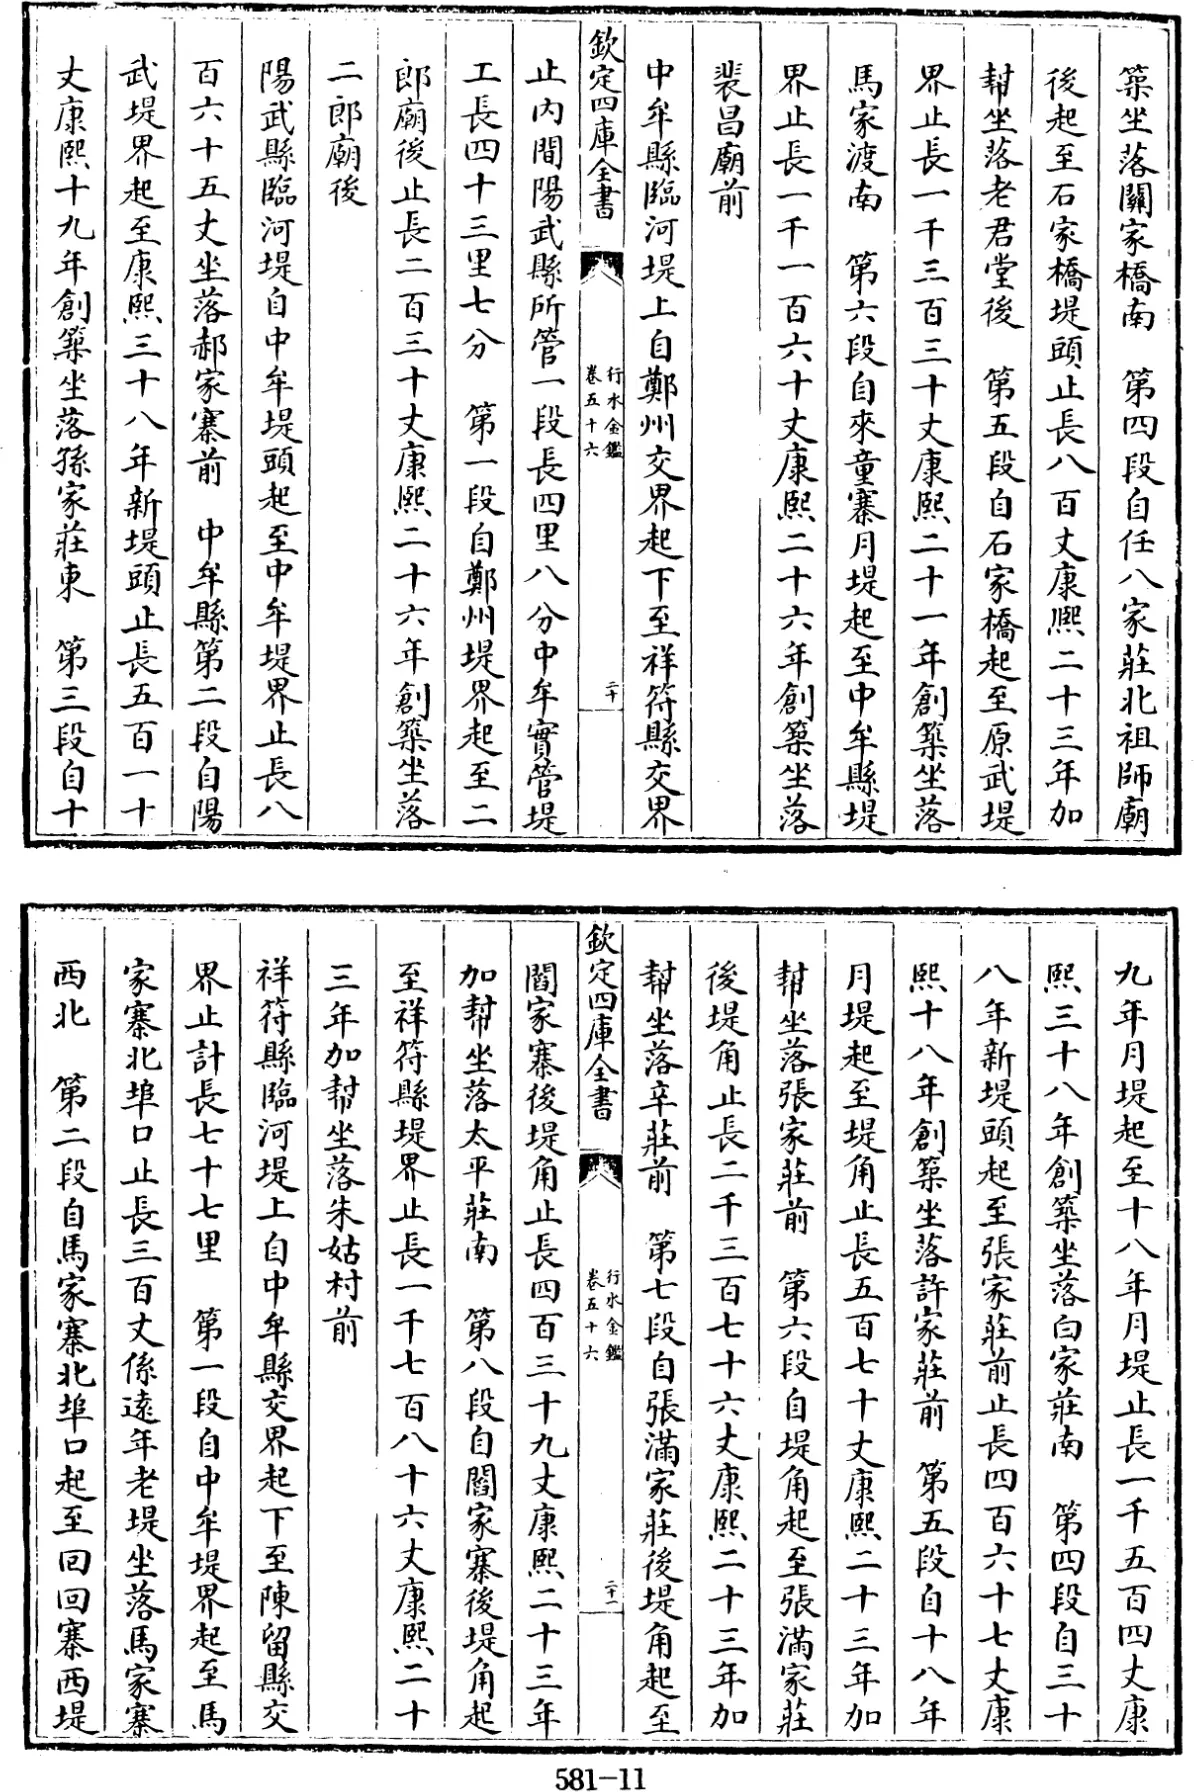 築坐落關家橋南　第四段自任八家莊北祖師廟
後起至石家橋堤頭止長八百丈康熙二十三年加
幇坐落老君堂後　第五段自石家橋起至原武堤
界止長一千三百三十丈康熙二十一年創築坐落
馬家渡南　第六段自來童寨月堤起至中牟縣堤
界止長一千一百六十丈康熙二十六年創築坐落
裴昌廟前
中牟縣臨河堤上自鄭州交界起下至祥符縣交界
欽定四庫全書
行水金鑑
卷五十六
二十
止內間陽武縣所管一段長四里八分中牟實管堤
工長四十三里七分　第一段自鄭州堤界起至二
郎廟後止長二百三十丈康熙二十六年創築坐落
二郎廟後
陽武縣臨河堤自中牟堤頭起至中牟堤界止長八
百六十五丈坐落郝家寨前　中牟縣第二段自陽
武堤界起至康熙三十八年新堤頭止長五百一十
丈康熙十九年創築坐落孫家莊東　第三段自十
九年月堤起至十八年月堤止長一千五百四丈康
熙三十八年創築坐落白家莊南　第四段自三十
八年新堤頭起至張家莊前止長四百六十七丈康
熙十八年創築坐落許家莊前　第五段自十八年
月堤起至堤角止長五百七十丈康熙二十三年加
幇坐落張家莊前　第六段自堤角起至張滿家莊
後堤角止長二千三百七十六丈康熙二十三年加
幇坐落辛莊前　第七段自張滿家莊後堤角起至
欽定四庫全書
行水金鑑
卷五十六
二十一
閻家寨後堤角止長四百三十九丈康熙二十三年
加幇坐落太平莊南　第八段自閻家寨後堤角起
至祥符縣堤界止長一千七百八十六丈康熙二十
三年加幇坐落朱姑村前
祥符縣臨河堤上自中牟縣交界起下至陳留縣交
界止計長七十七里　第一段自中牟堤界起至馬
家寨北埠口止長三百丈係遠年老堤坐落馬家寨
西北　第二段自馬家寨北埠口起至回回寨西堤
581-11